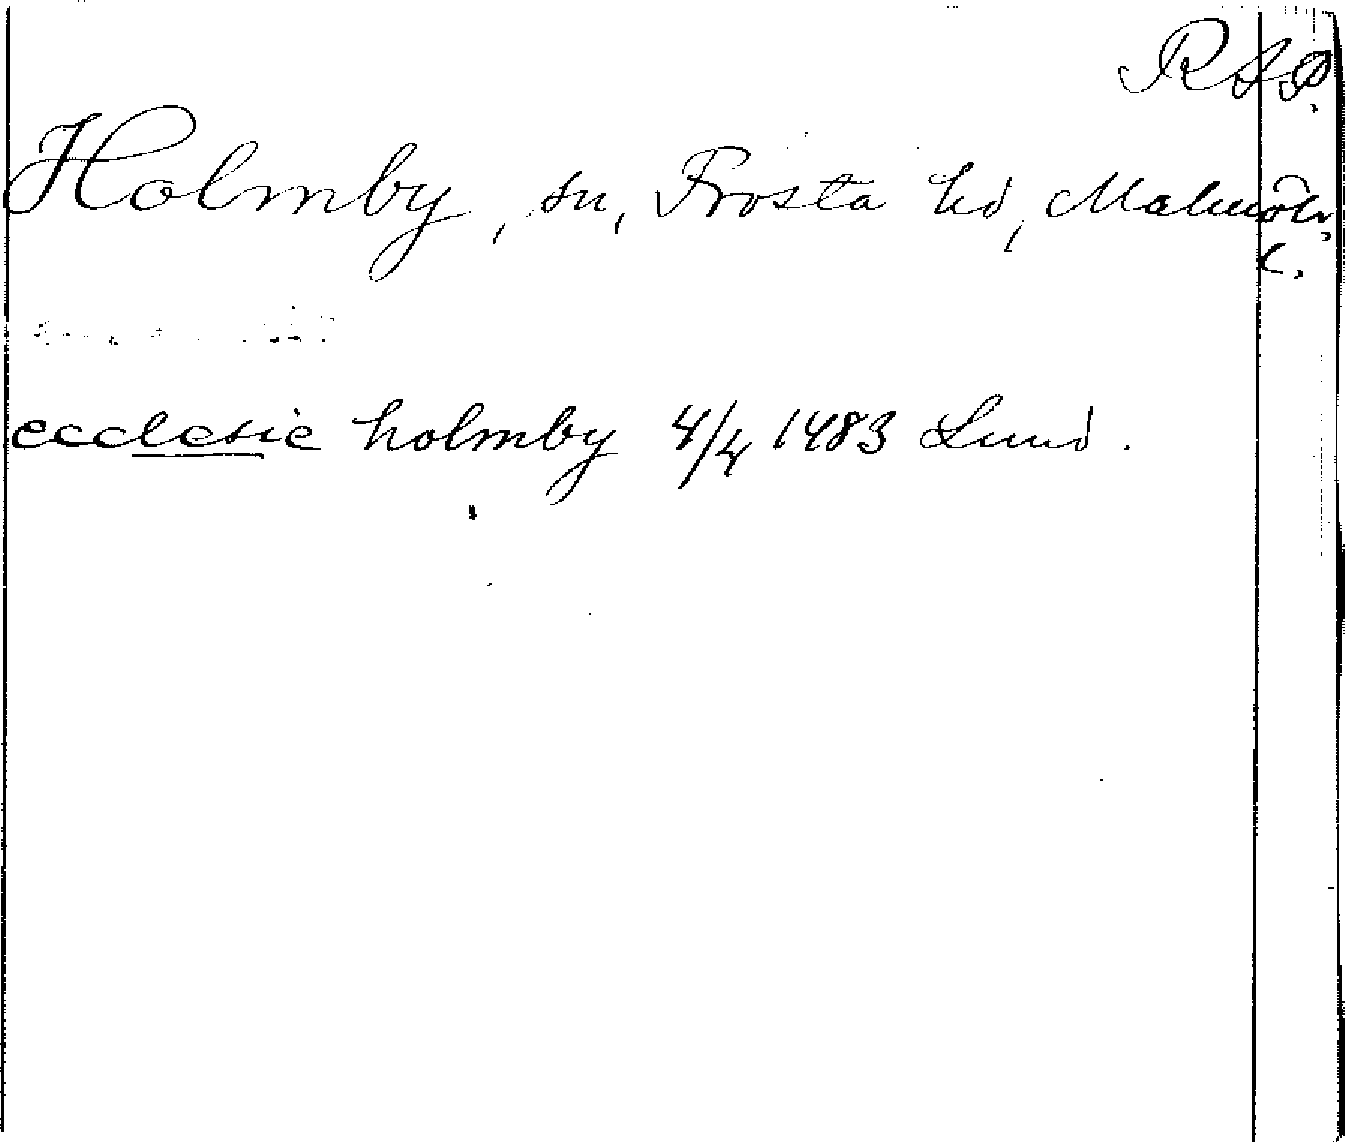 RAP.
Holmby, sn, Frosta hd, Malmöh.
l.
ecclesie holmby 4/4 1483 Lund.